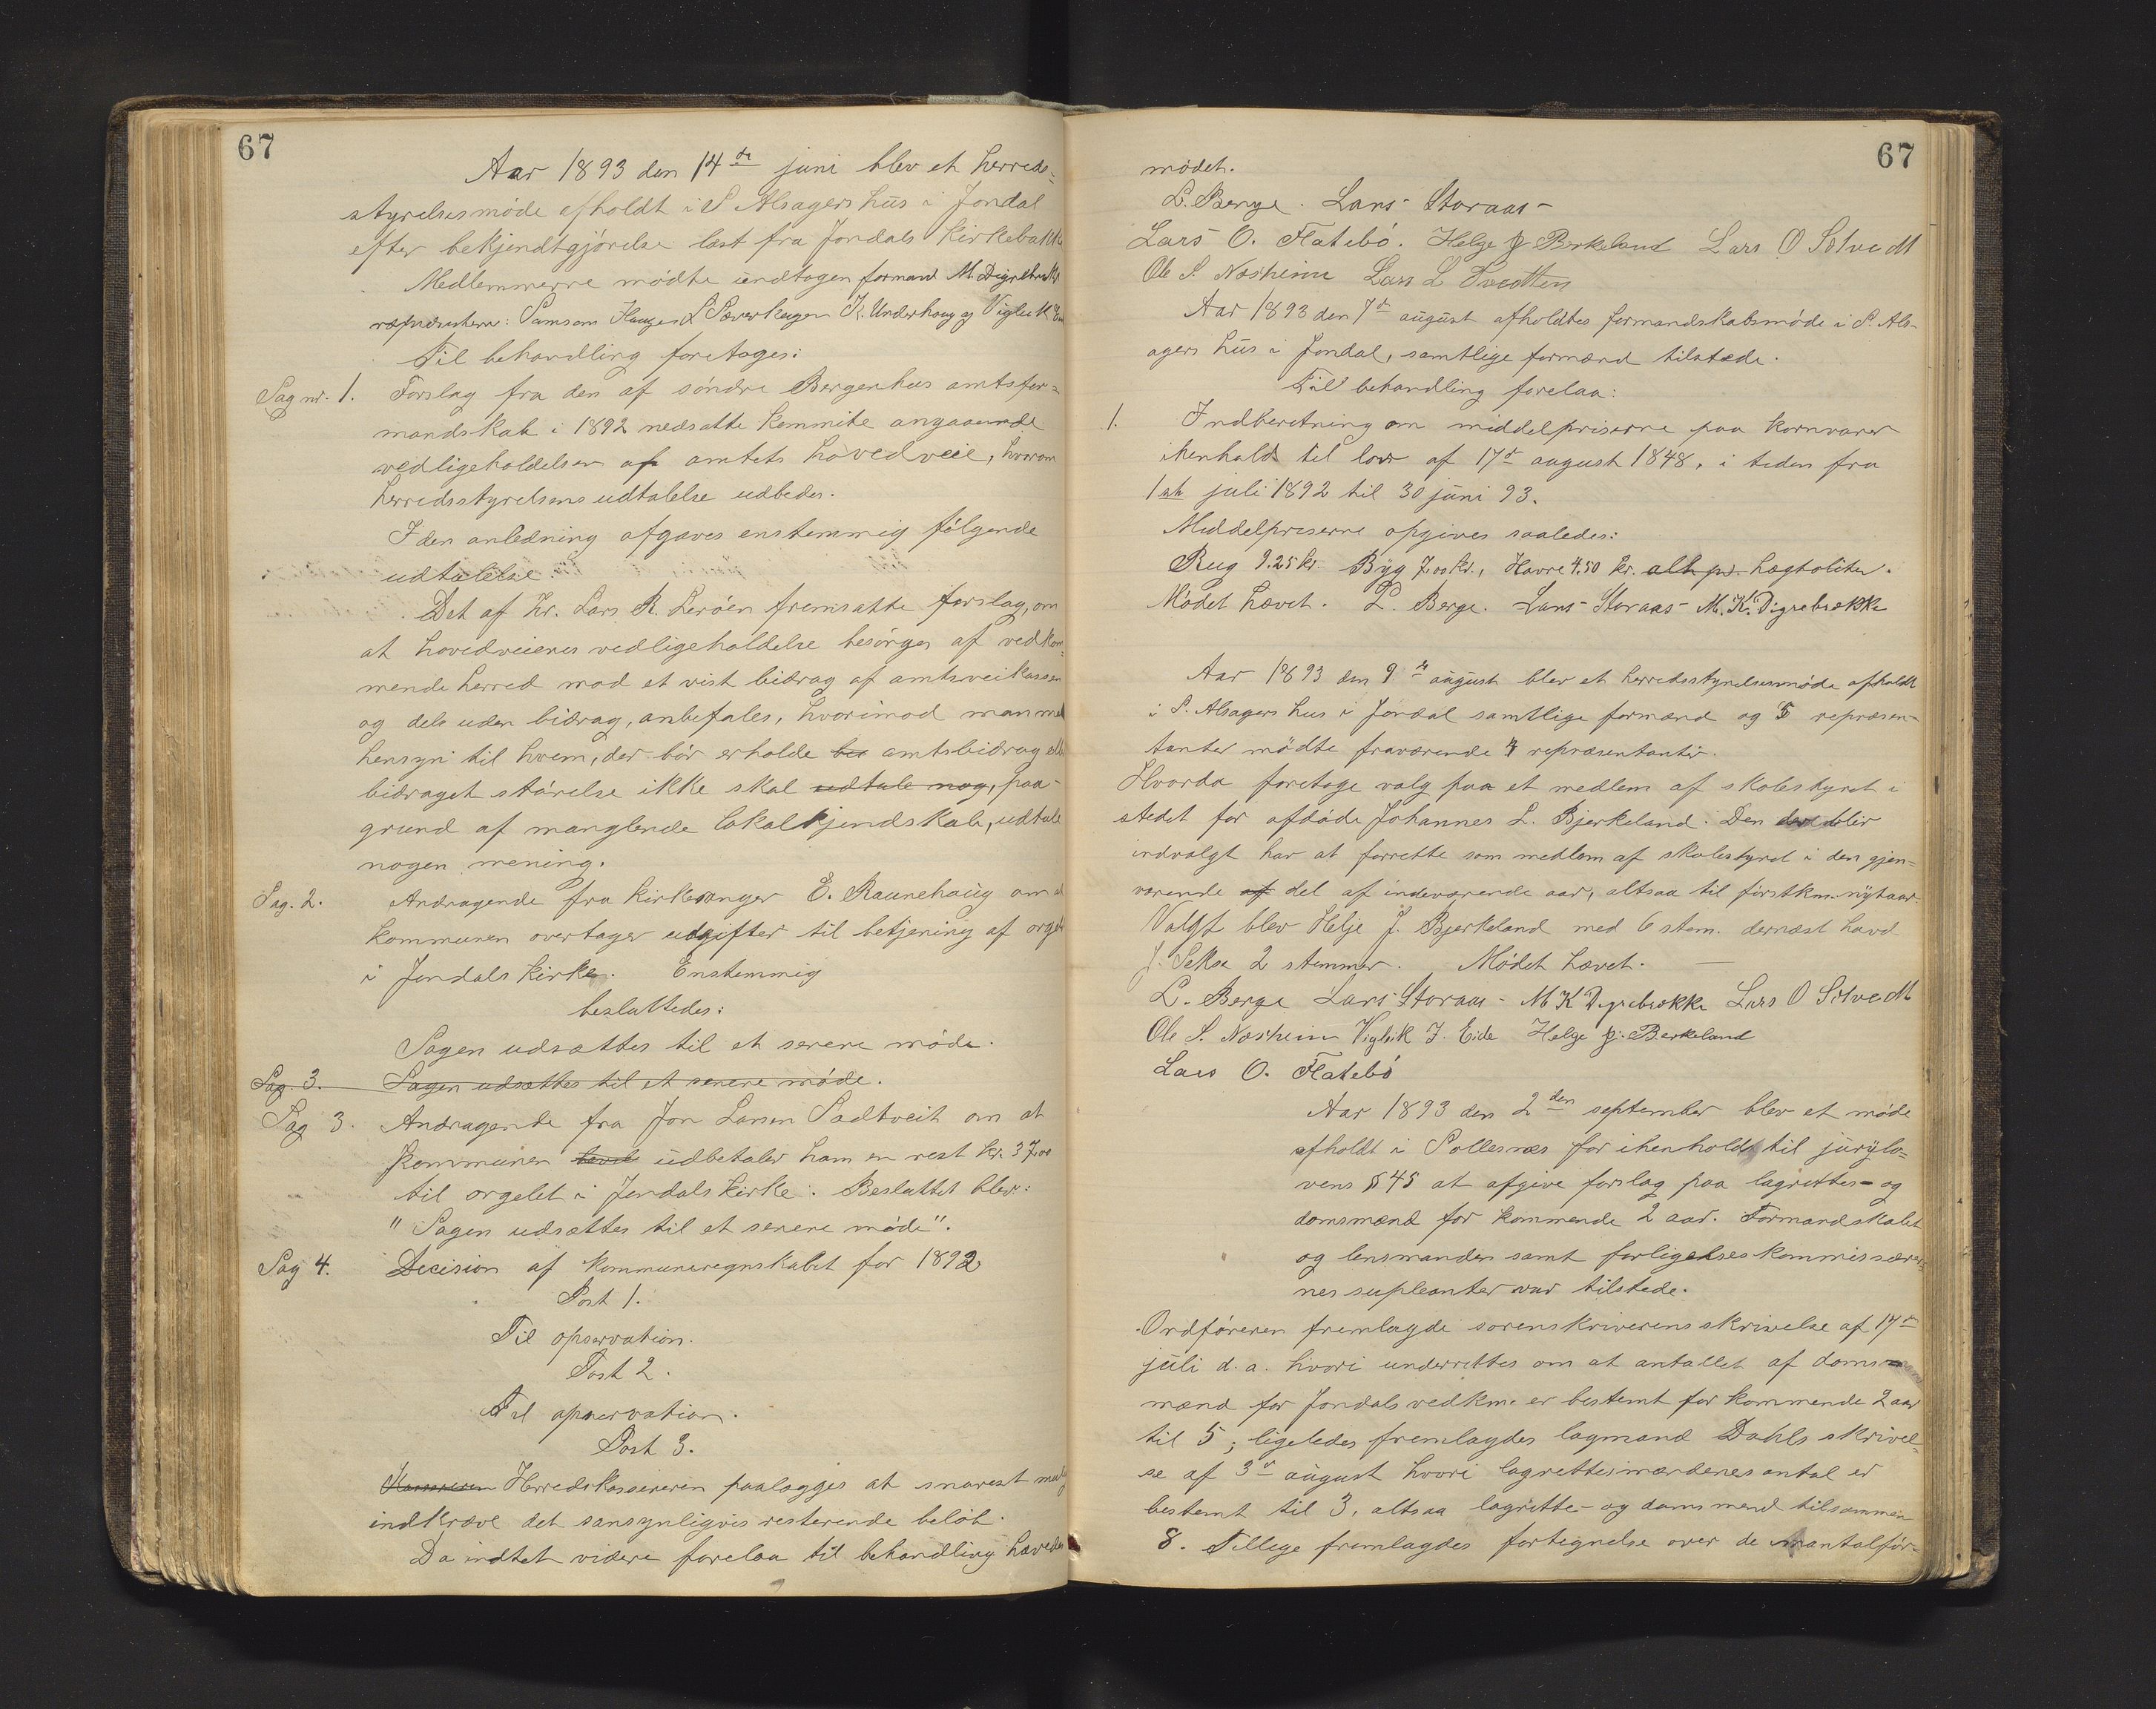 67
Aar 1893 den 14de juni blev et herreds=
styrelsesmöde afholdt i S Alsagers hus i Jondal
efter bekjendtgjörelse læst fra Jondals kirkebakke
Medlemmerne mödte undtagen formand M. Digrebrække
repræsentere: Samson Hauge L Soverhagen K. Underhaug og Viglik
Til behandling foretoges:
Sag nr. 1. Forslag fra den af söndre Bergenhus amtsfor=
mandskab i 1892 nedsatte kommite angaaende
vedligeholdelsen af amtets hovedveie, hvorom
herredsstyrelsens udtalelse udbedes.
I den anledning afgaves enstemmig fölgende
udtalelse.
Det af Hr. Lars R. Leröen fremsatte forslag, om
at hovedveienes vedligeholdelse besörges af vedkom=
mende herred mod et vist bidrag af amtsveikassen
og dels uden bidrag, anbefales, hvorimod man med
hensyn til hvem, der bör erholde bes amtsbidrag ell
bidraget störelse ikke skal udtale nog, paa-
grund af manglende lokalkjendskab, udtale
nogen mening.
Sag. 2. Andragende fra kirkesanger E. Raunehaug om at
kommunen overtager udgifter til betjening af orgel
i Jondals kirke. Enstemmig
besluttedes:
Sagen udsættes til et senere möde.
Sag 3. Sagen udsættes til et senere möde.
Sag 3. Andragende fra Jon Larsen Sædtveit om at
kommunen udbetaler ham en rest kr. 37,00
til orgelet i Jondals kirke. Besluttet blev:
"Sagen udsættes til et senere möde".
Sag 4. Decision af kommuneregnskabet for 1892
Post 1.
Til opservation.
Post 2.
Til opservation.
Post 3.
Kassereren Herredskassereren paalægges at snarest mulig
indkræve det sansynligvis resterende belöb.
Da indtet videre forelaa til behandling hævedes
67
mödet.
L. Berge. Lars Storaas-
Lars O. Flatebö. Helge J Berkeland Lars O Solvedt
Ole S. Næsheim Lars L Tvedten
Aar 1893 den 7de august afholdtes formandskabsmöde i S. Als-
agers hus i Jondal, samtlige formænd tilstede.
Til behandling forelaa:
1. Indberetning om middelpriserne paa kornvarer
ihenhold til lov af 17de august 1848, i tiden fra
1ste juli 1892 til 30 juni 93.
Middelpriserne opgives saaledes:
Rug 9.25 kr. Byg 7.00 kr., Havre 4.50 kr. alt pr. hægtoliter.
Mödet hævet. L. Berge. Lars Storaas- M. K. Digrebrække
Aar 1893 den 9de august blev et herredsstyrelsesmöde afholdt
i S. Alsagers hus i Jondal samtlige formænd og 5 repræsen-
tanter mödte fraværende 4 repræsentanter.
Hvorda foretoge valg paa et medlem af skolestyret i
stedet for afdöde Johannes L. Bjerkeland. Den der blir
indvalgt har at forrette som medlem af skolestyret i den gjen=
værende af del af indeværende aar, altsaa til förstkm. nytaar.
Valgt blev Helje J. Bjerkeland med 6 stem. dernæst havd
J. Sekse 2 stemmer. Mödet hævet. —
L. Berge Lars Storaas- M K Digrebrække Lars O Solvedt
Ole S. Næsheim Viglik J. Eide Helge J. Berkeland
Lars O. Flatebö
Aar 1893 den 2den september blev et möde
afholdt i Sollesnæs for ihenhold til jurylo=
vens § 45 at afgive forslag paa lagrettes- og
domsmænd for kommende 2 aar. Formandskabet
og lensmanden samt forligelseskommissærer=
nes supleanter var tilstede.
Ordföreren fremlagde sorenskriverens skrivelse af 17de
juli d.a. hvori underrettes om at antallet af doms-
mænd for Jondals vedkm. er bestemt for kommende 2 aar
til 5; ligeledes fremlagdes lagmand Dahls skrivel-
se af 3de august hvori lagrettesmændenes antal er
bestemt til 3, altsaa lagrette- og domsmænd tilsammen
8. Tillige fremlagdes fortegnelse over de mantalför-